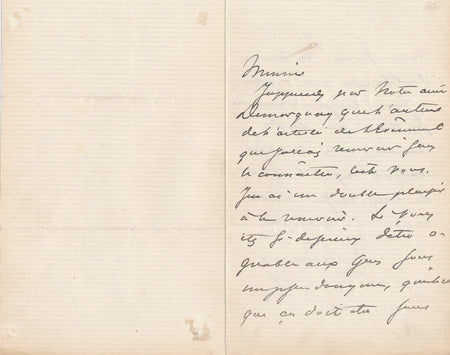 Monsieur
J'apprends par Notre ami
Demarquay que l'auteur
de l'article de l'Événement
que j'avais remercié sans
le connaître, c'est vous.
J'en ai un double plaisir
à le remercier. Si vous
êtes si désireux d'être a-
gréable aux gens sous
un pseudonyme, qu'est-ce
que ça doit être sans